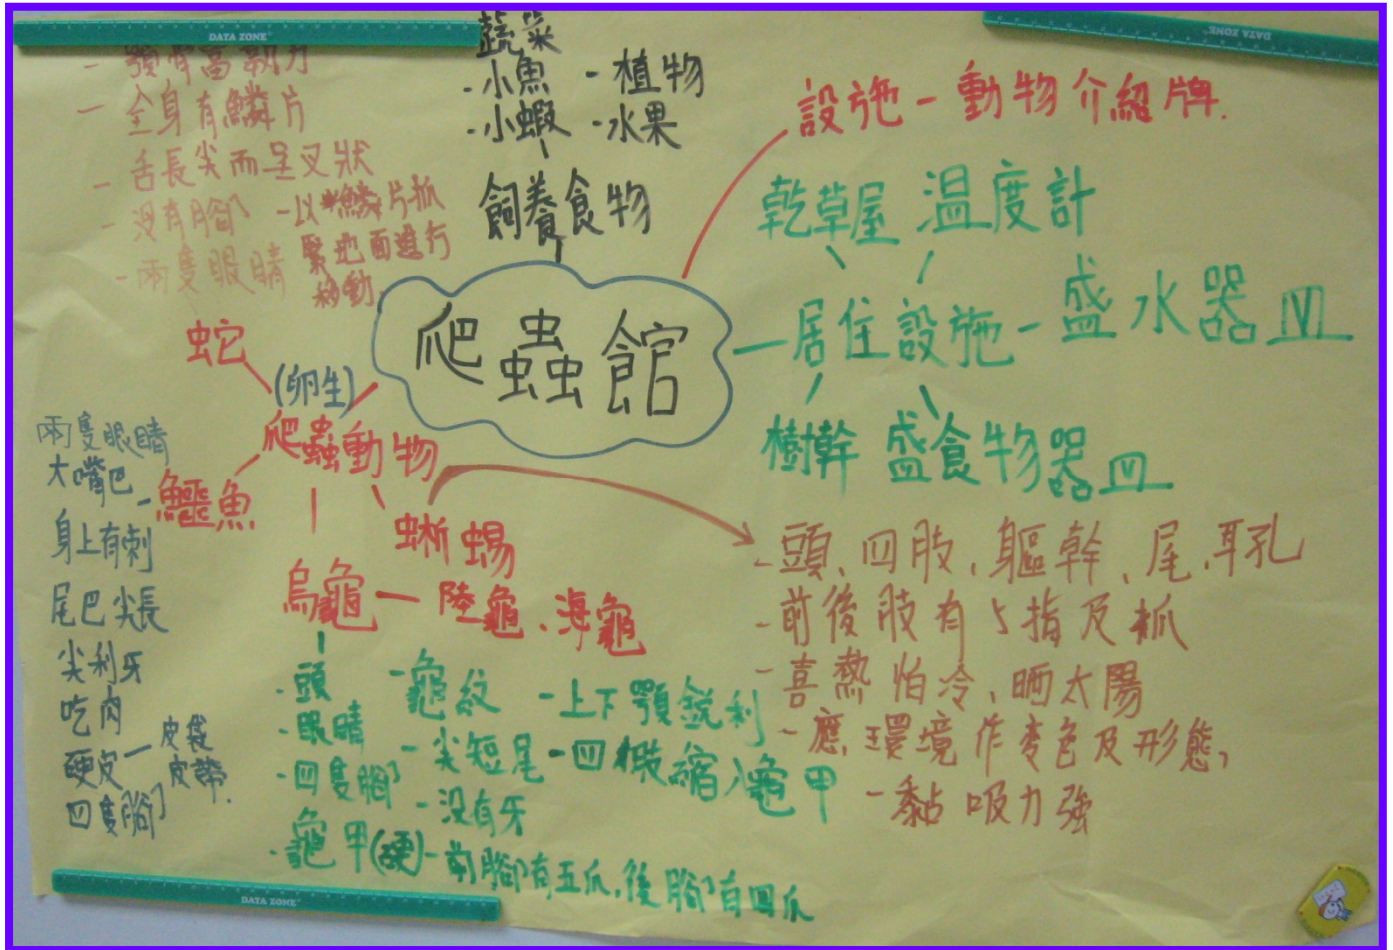 DATA ZONE
DATA ZONE
顎骨富韌力
- 全身有鱗片
- 舌長尖而呈叉狀
- 沒有腳
- 以鱗片抓緊地面進行移動
- 兩隻眼睛
蔬菜
·小魚 -植物
·小蝦 -水果
飼養食物
設施-動物介紹牌.
乾草屋 溫度計
居住設施-盛水器皿
樹幹 盛食物器皿
爬蟲館
蛇
(卵生)
爬蟲動物
鱷魚
蜥蜴
烏龜-陸龜、海龜
兩隻眼睛
大嘴巴
身上有刺
尾巴尖長
尖利牙
吃肉
硬皮-皮袋
皮帶.
四隻腳
·頭
·眼睛
·四隻腳
·龜甲(硬)
-龜紋
-尖短尾
-沒有牙
-前腳有五爪,後腳有四爪
-上下顎銳利
-頭、四肢、軀幹、尾、耳孔
-前後肢有5指及
-喜熱怕冷、晒太陽
-應環境作變色及形態,
-黏吸力強
DATA ZONE